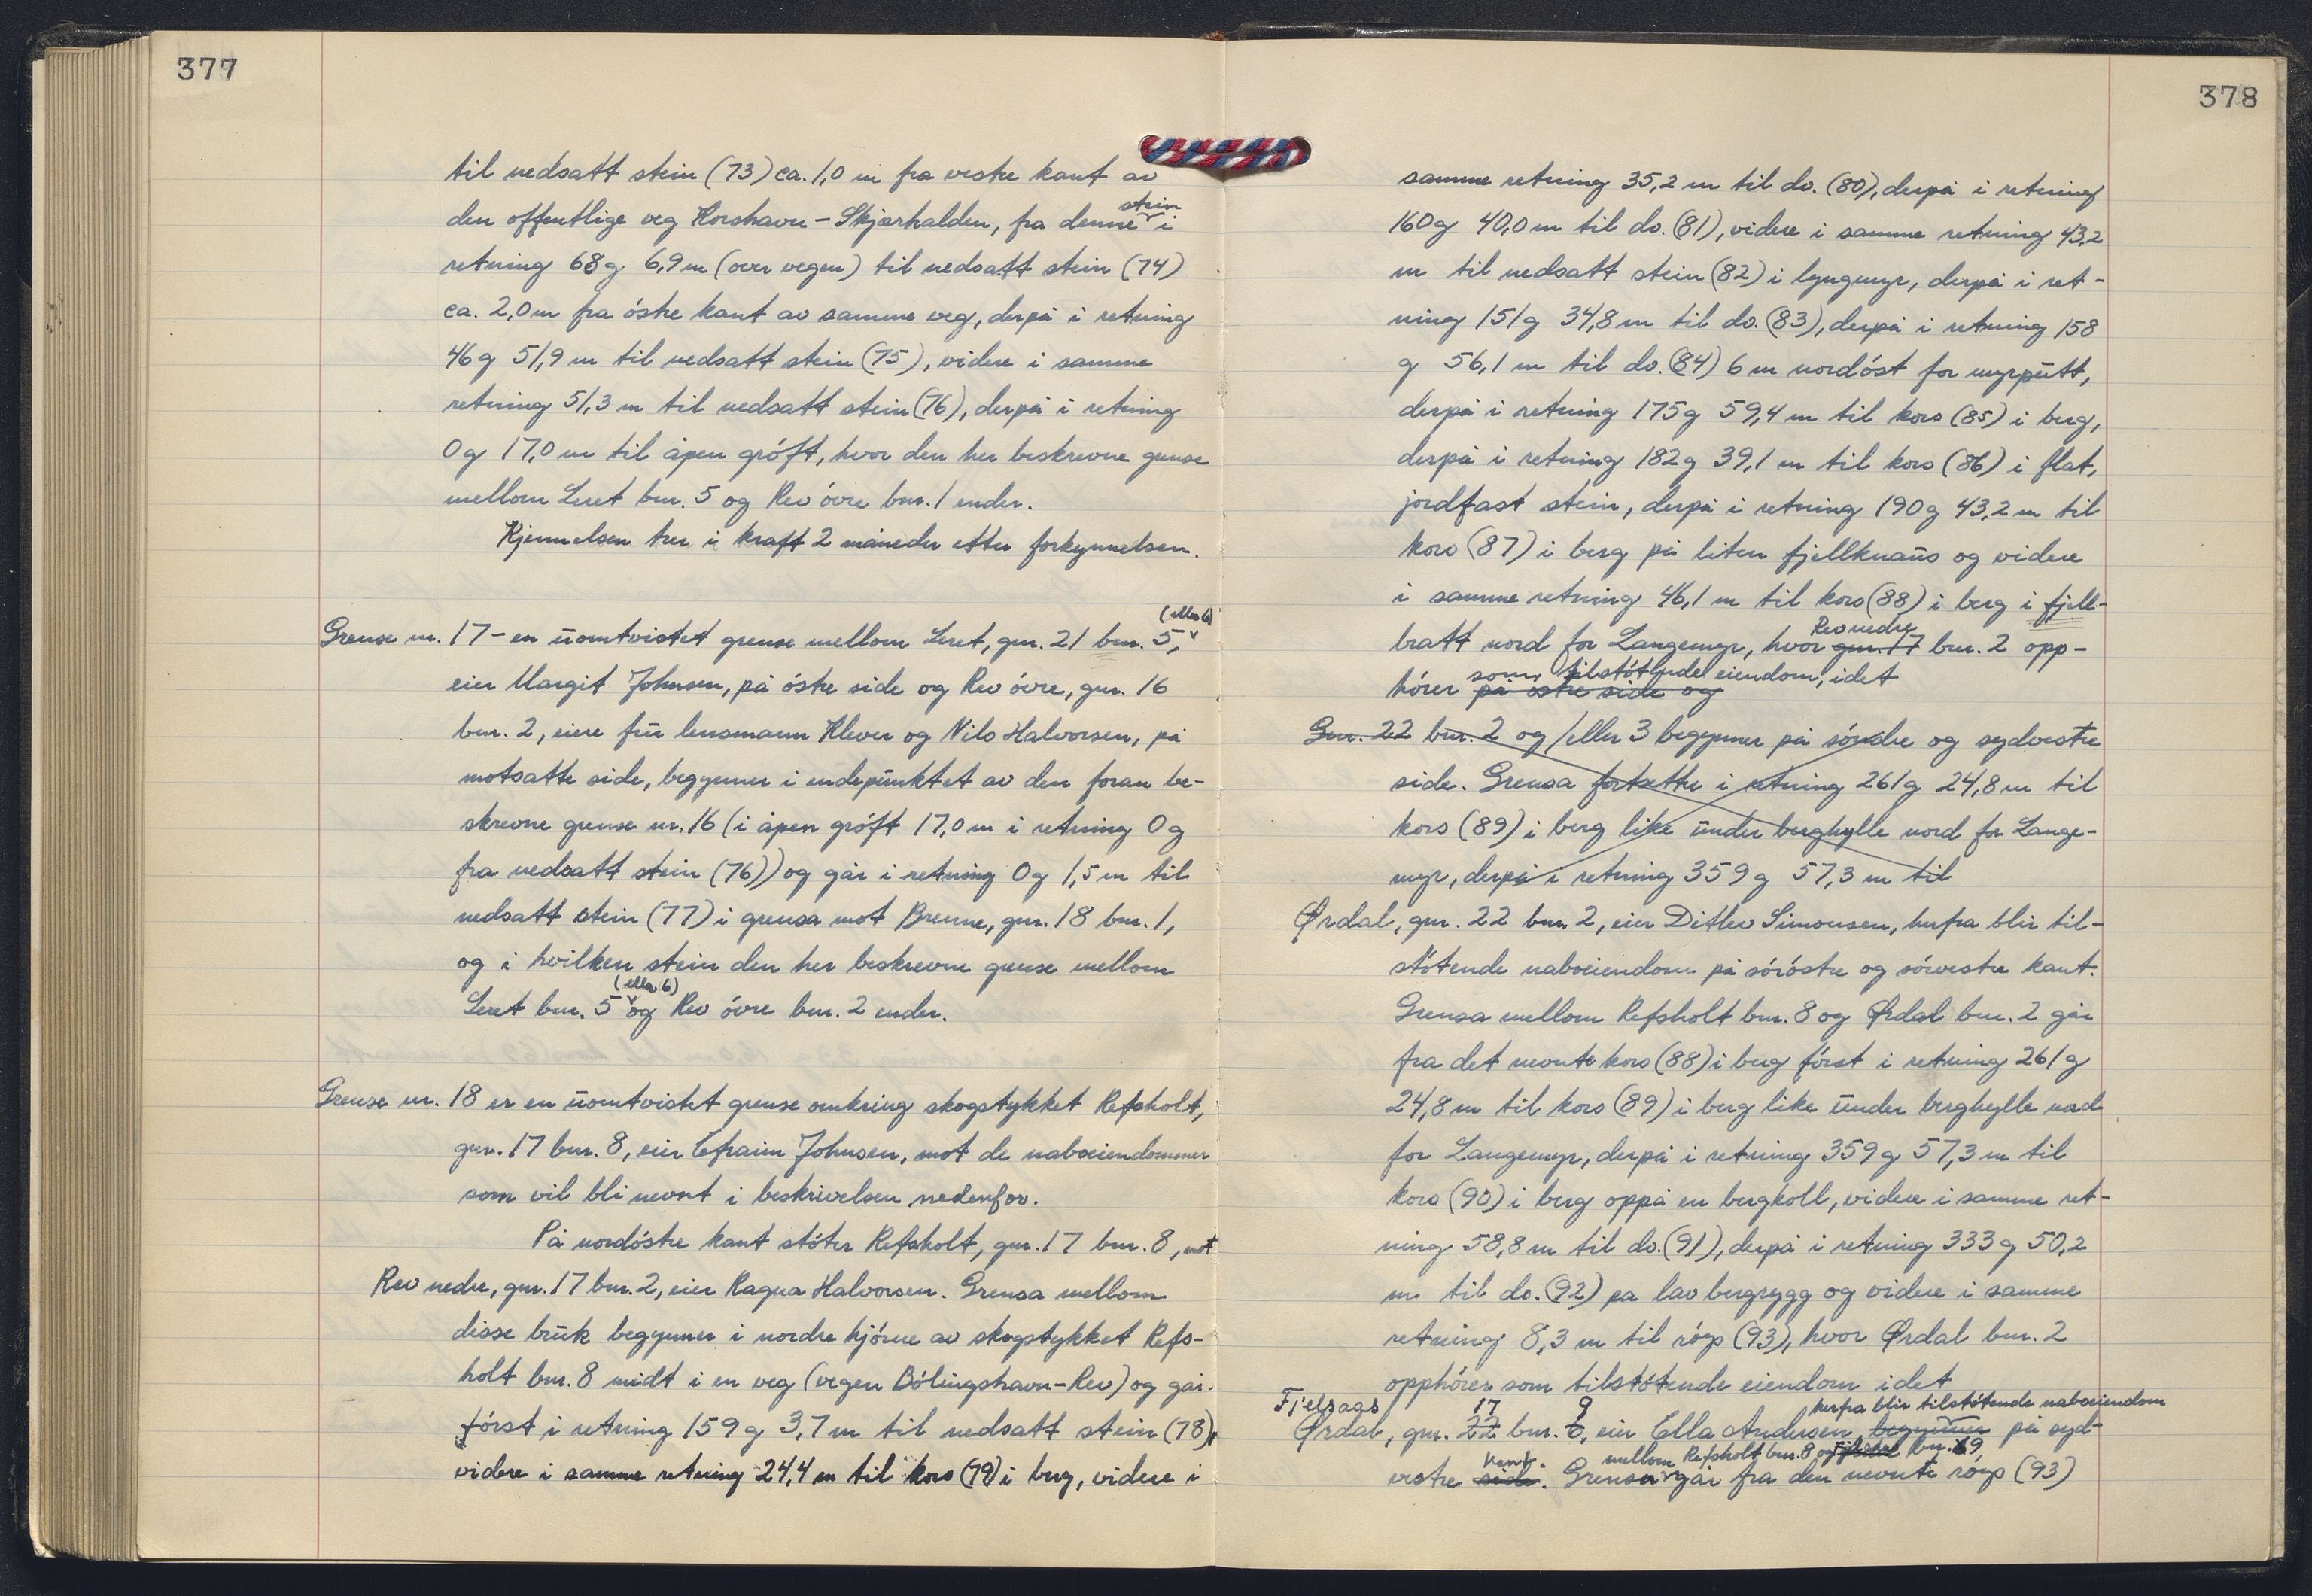 377
til nedsatt stein (73) ca. 1,0 m fra vestre kant av
den offentlige veg Korshavn - Skjærhalden, fra denne stein i
retning 68g 6,9 m (over vegen) til nedsatt stein (74)
ca. 2,0 m fra östre kant av samme veg, derpå i retning
46 g 51,9 m til nedsatt stein (75), videre i samme
retning 51,3 m til nedsatt stein (76), derpå i retning
0g 17,0 m til åpen gróft, hvor den her beskrevne grense
mellom Leret bnr. 5 og Rev óvre bnr. 1 ender.
Kjennelsen trer i kraft 2 måneder etter forkynnelsen.
Grense nr. 17 - en uomtvistet grense mellom Leret, gnr. 21 bnr. 5, (eller 6)
eier Margit Johnsen, på óstre side og Rev óvre, gnr. 16
bnr. 2, eiere fru lensmann Klever og Nils Halvorsen, på
motsatte side, begynner i endepunktet av den foran be-
skrevne grense nr. 16 (i åpen gróft 17,0 m i retning 0g
fra nedsatt stein (76)) og går i retning 0g 1,5 m til
nedsatt stein (77) i grensa mot Brenne, gnr. 18 bnr. 1,
og i hvilken stein den her beskrevne grense mellom
Leret bnr. 5 (eller 6) og Rev óvre bnr. 2 ender.
Grense nr. 18 er en uomtvistet grense omkring skogstykket Refsholt,
gnr. 17 bnr. 8, eier Efraim Johnsen, mot de naboeiendommer
som vil bli nevnt i beskrivelsen nedenfor.
På nordóstre kant stóter Refsholt, gnr. 17 bnr. 8, mot
Rev nedre, gnr. 17 bnr. 2, eier Ragna Halvorsen. Grensa mellom
disse bruk begynner i nordre hjórne av skogstykket Refs-
holt bnr. 8 midt i en veg (vegen Bólingshavn-Rev) og går
fórst i retning 159 g 3,7 m til nedsatt stein (78),
videre i samme retning 24,4 m til kors (79) i berg, videre i
378
samme retning 35,2 m til do. (80), derpå i retning
160g 40,0 m til do. (81), videre i samme retning 43,2
m til nedsatt stein (82) i lyngmyr, derpå i ret-
ning 151g 34,8 m til do. (83), derpå i retning 158
g 56,1 m til do. (84) 6 m nordóst for myrputt,
derpå i retning 175g 59,4 m til kors (85) i berg,
derpå i retning 182g 39,1 m til kors (86) i flat,
jordfast stein, derpå i retning 190g 43,2 m til
kors (87) i berg på liten fjellknaus og videre
i samme retning 46,1 m til kors (88) i berg i fjell-
bratt nord for Langemyr, hvor gnr. 17 Rev nedre bnr. 2 opp-
hórer på óstre side og som tilstótende eiendom, idet
Gnr. 22 bnr. 2 og/eller 3 begynner på sóndre og sydvestre
side. Grensa fortsetter i retning 261g 24,8 m til
kors (89) i berg like under berghylle nord for Lange-
myr, derpå i retning 359 g 57,3 m til
Ørdal, gnr. 22 bnr. 2, eier Ditlev Simonsen, herfra blir til-
stótende naboeiendom på sóróstre og sórvestre kant.
Grensa mellom Refsholt bnr. 8 og Ørdal bnr. 2 går
fra det nevnte kors (88) i berg fórst i retning 261g
24,8 m til kors (89) i berg like under berghylle nord
for Langemyr, derpå i retning 359 g 57,3 m til
kors (90) i berg oppå en bergkoll, videre i samme ret-
ning 58,8 m til do. (91), derpå i retning 333 g 50,2
m til do. (92) på lav bergrygg og videre i samme
retning 8,3 m til róys (93), hvor Ørdal bnr. 2
opphórer som tilstótende eiendom idet
Fjelsags 17 9 herfra blir tilstótende naboeiendom
Ørdal, gnr. 22 bnr. 6, eier Ella Andersen, begynner på syd-
kant. mellom Refsholt bnr. 8 og bnr. 9,
vestre side. Grensa går fra den nevnte róys (93)